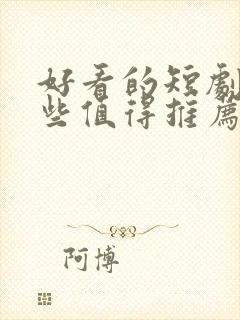 好看的短劇
些值得推薦
阿博